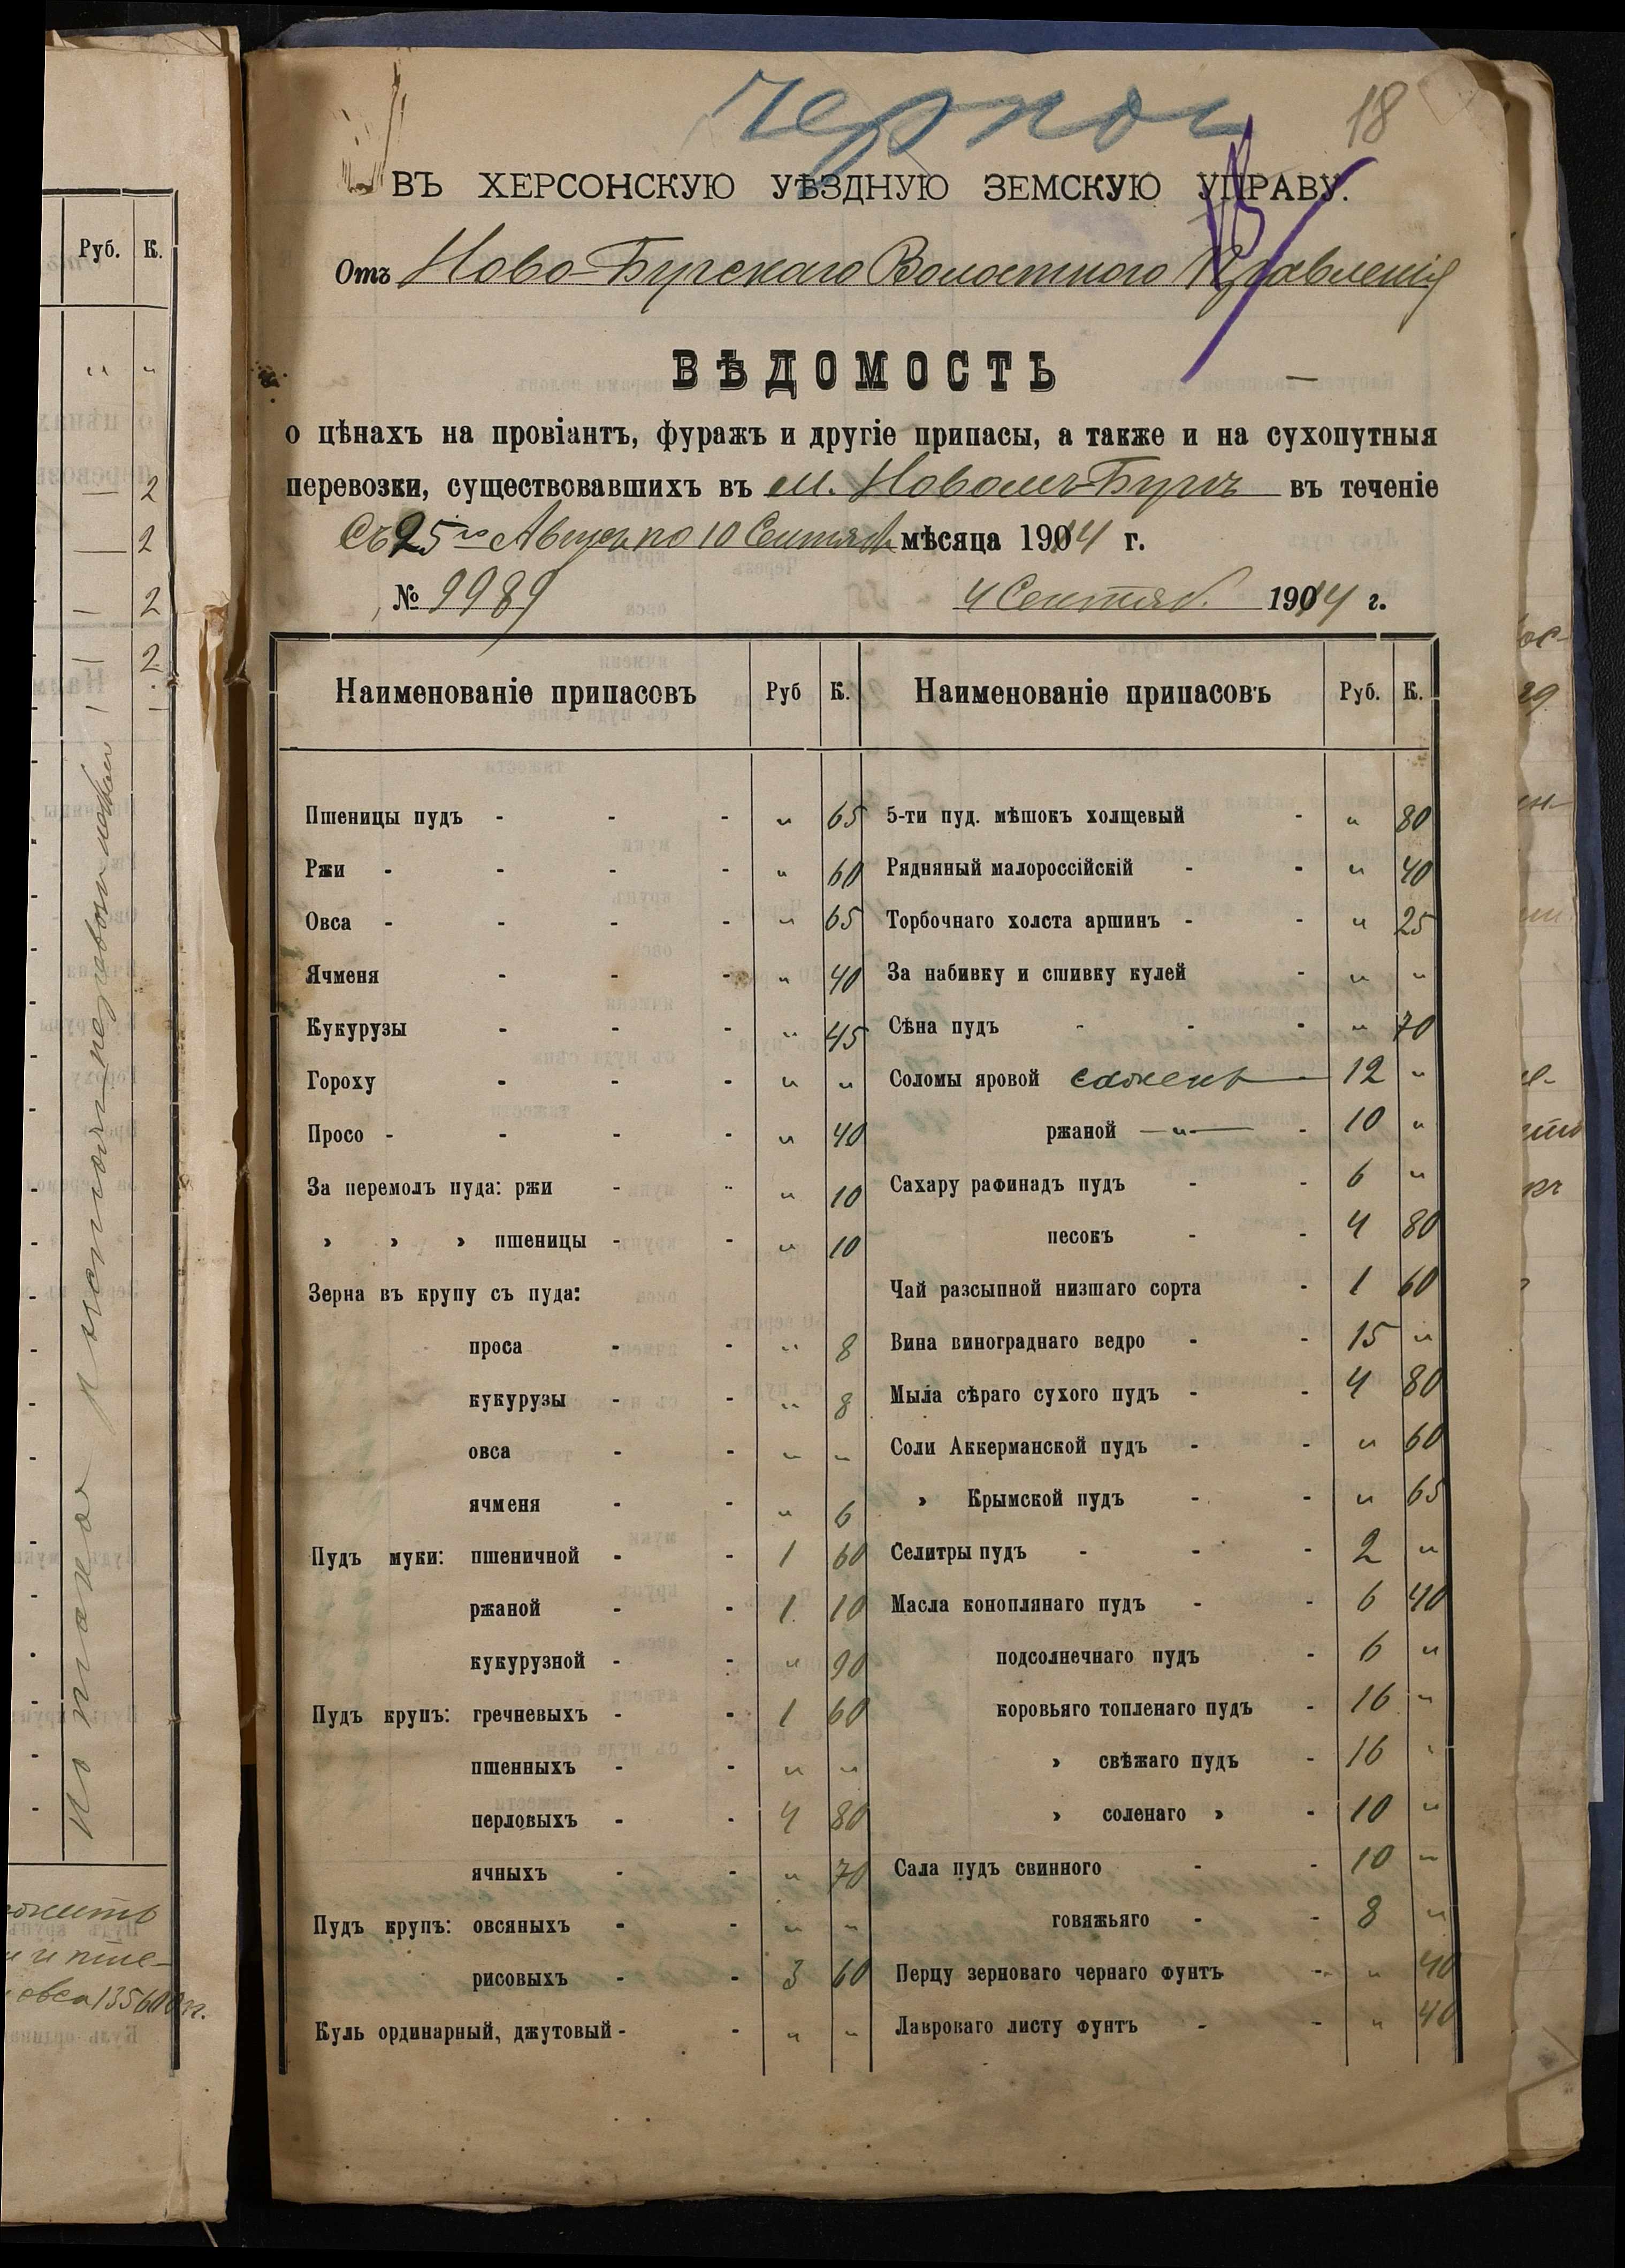 Руб. К.
" "
— 2
— 2
— 2
— 2
18
ВЪ ХЕРСОНСКУЮ УѢЗДНУЮ ЗЕМСКУЮ УПРАВУ.
Отъ Ново-Бугскаго Волостного Правленія
ВѢДОМОСТЬ
о цѣнахъ на провіантъ, фуражъ и другіе припасы, а также и на сухопутныя
перевозки, существовавшихъ въ м. Новомъ-Бугѣ въ теченіе
Съ 25го Августа по 10 Сентября мѣсяца 1914 г.
№ 9989 4 Сентяб. 1914 г.
Наименованіе припасовъ Руб К. Наименованіе припасовъ Руб. К.
Пшеницы пудъ - - - " 65 5-ти пуд. мѣшокъ холщевый - " 80
Ржи - - - - " 60 Рядняный малороссійскій - - " 40
Овса - - - - " 65 Торбочнаго холста аршинъ - - " 25
Ячменя - - - " 40 За набивку и сшивку кулей - " "
Кукурузы - - - " 45 Сѣна пудъ - - - " 70
Гороху - - - " " Соломы яровой сажень — 12 "
Просо - - - - " 40 ржаной — " — - 10 "
За перемолъ пуда: ржи - - " 10 Сахару рафинадъ пудъ - - 6 "
» » » пшеницы - - " 10 песокъ - - 4 80
Зерна въ крупу съ пуда: Чай разсыпной низшаго сорта - 1 60
проса - - " 8 Вина винограднаго ведро - - 15 "
кукурузы - - " 8 Мыла сѣраго сухого пудъ - - 4 80
овса - - " " Соли Аккерманской пудъ - - " 60
ячменя - - " 6 » Крымской пудъ - - " 65
Пудъ муки: пшеничной - - 1 60 Селитры пудъ - - - 2 "
ржаной - - 1 10 Масла коноплянаго пудъ - - 6 40
кукурузной - - " 90 подсолнечнаго пудъ - 6 "
Пудъ крупъ: гречневыхъ - - 1 60 коровьяго топленаго пудъ - 16 "
пшенныхъ - - " " » свѣжаго пудъ - 16 "
перловыхъ - - 4 80 » соленаго » - 10 "
ячныхъ - - " 70 Сала пудъ свинного - - 10 "
Пудъ крупъ: овсяныхъ - - " " говяжьяго - - 8 "
рисовыхъ - - 3 60 Перцу зерноваго чернаго фунтъ - " 40
Куль ординарный, джутовый - - " " Лавроваго листу фунтъ - - " 40